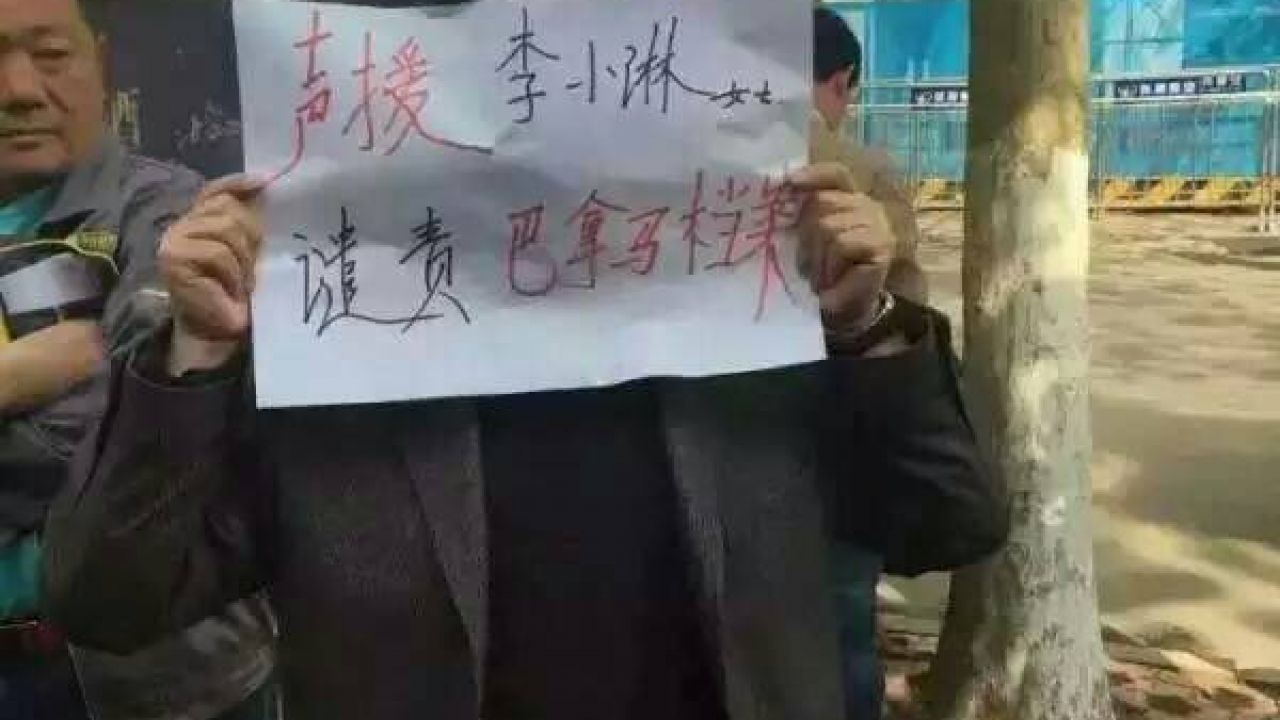 声援 李小琳女士
谴责 巴拿马档案